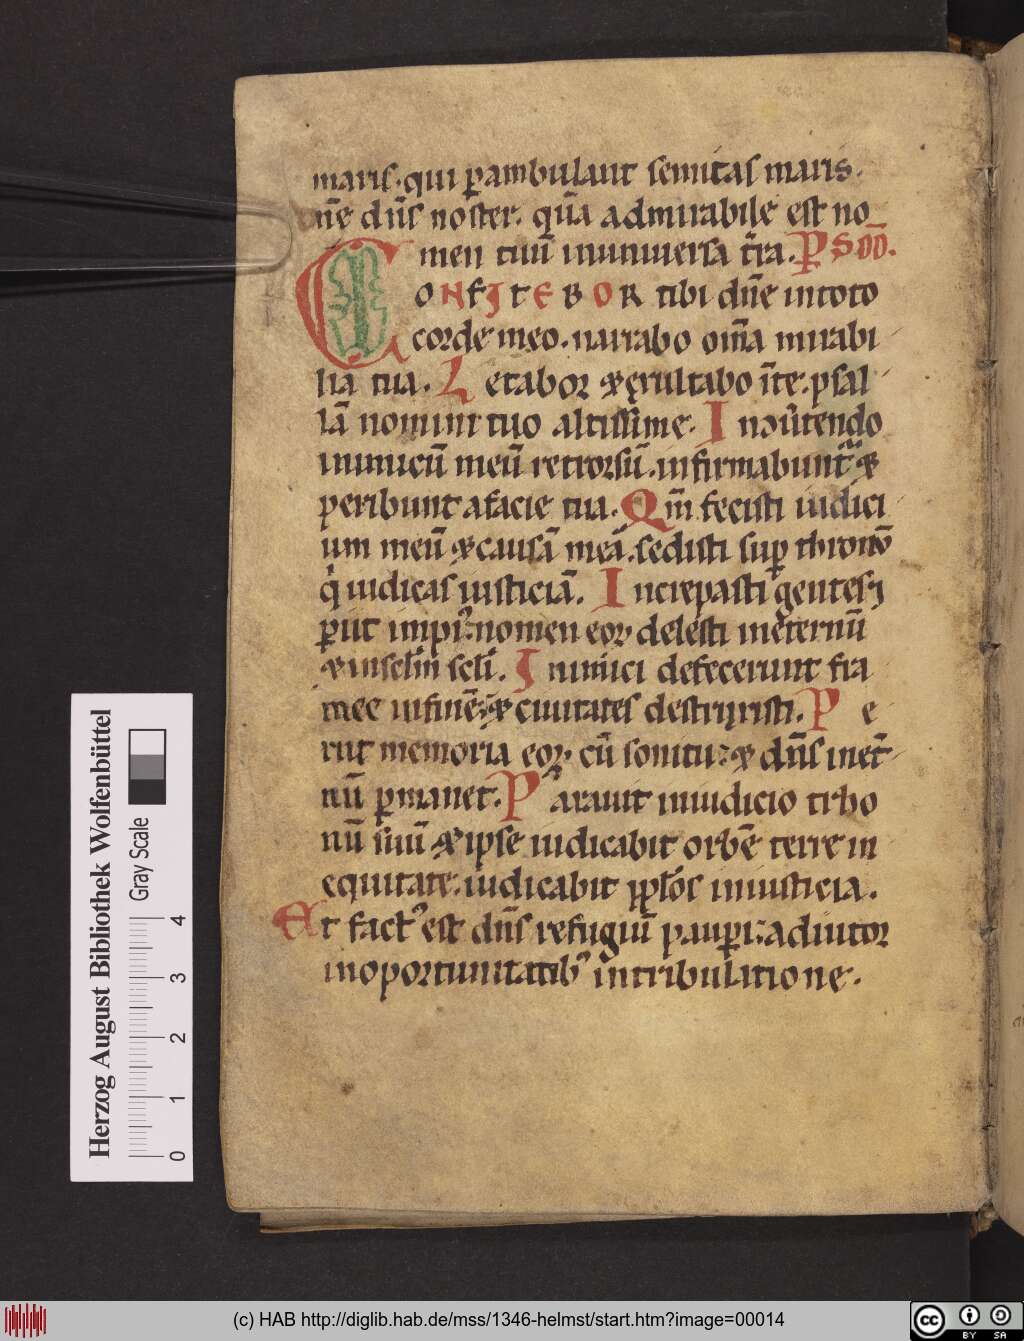 maris. qui p̱ambulant semitas maris.
ne̅ dn̅s noster. qua̅ admirabile est no
men tuu̅ inuniuersa tr̅a. Ps̅
ONFITEBOR tibi dn̅e intoto
corde meo. narrabo om̅a mirabi
lia tua. Letabor & exultabo i̅te. psal
la̅ nomini tuo altissime. I nco̅uertendo
inimicu̅ meu̅ retrorsu̅. infirmabunt̅ &
peribunt afacie tua. Qm̅ fecisti iudici
um meu̅ & causa̅ mea̅. sedisti sup̱ throno̅
q̇ iudicas iusticia̅. Increpasti gentes ⁊
p̱iit impiꝰ. nomen eoꝝ delesti ineternu̅
& inselm̅ scl̅i. Inimici defecerunt fra
mee infine̅. & ciuitates destruxisti. Pe
riit memoria eoꝝ cu̅ sonitu. & dn̅s inet̅
nu̅ p̱manet. Parauit iniudicio trho
nu̅ suu̅ & ipse iudicabit orbe̅ terre in
equitate. iudicabit ppl̅os iniusticia.
Et factꝰ est dn̅s refugiu̅ paup̱i. adiutor
inoportunitatibꝰ intribulatione.
Herzog August Bibliothek Wolfenbüttel
Gray Scale
0 1 2 3 4
(c) HAB http://diglib.hab.de/mss/1346-helmst/start.htm?image=00014
cc BY SA